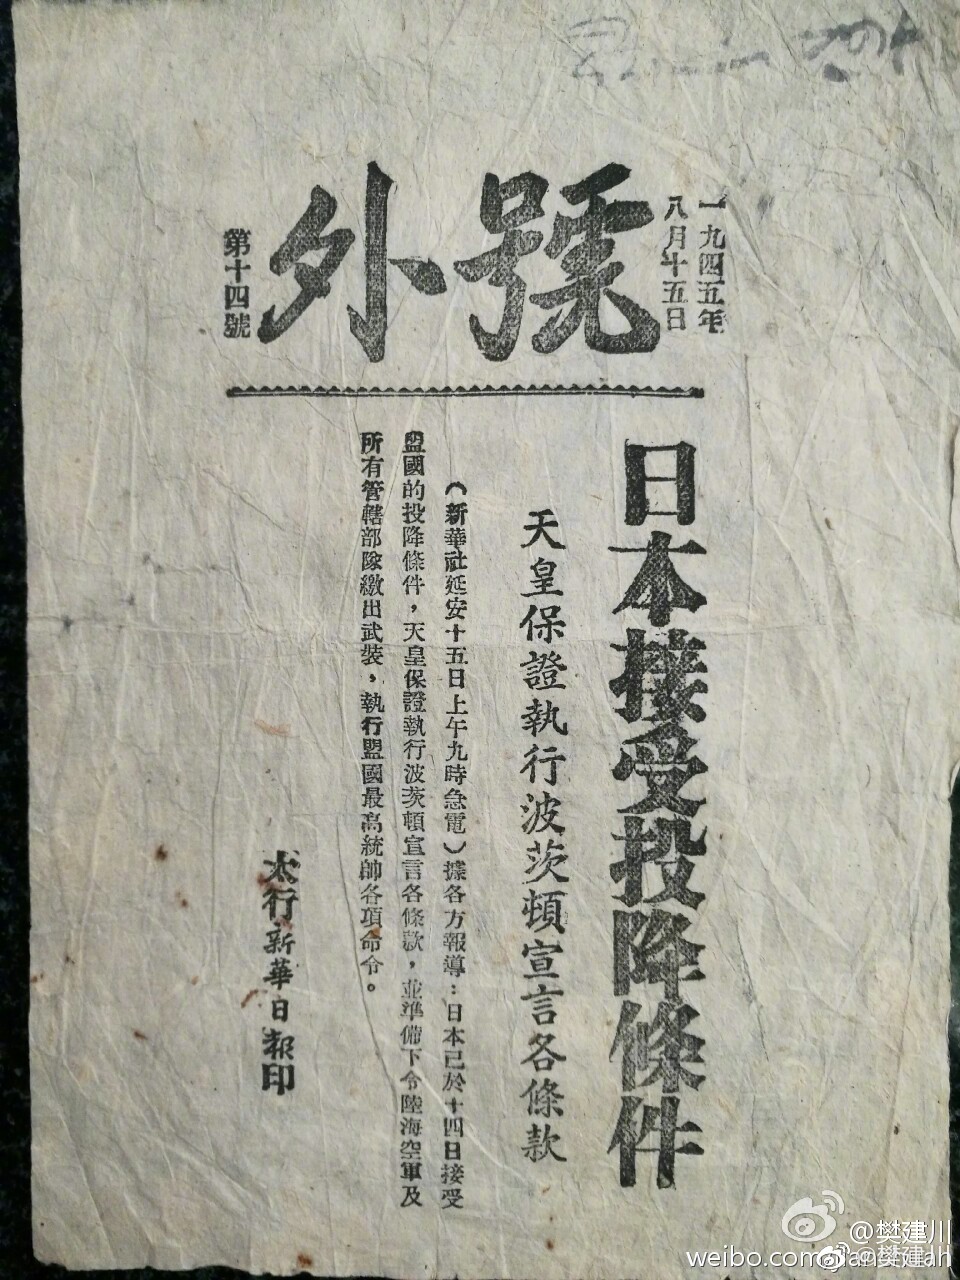 號外
一九四五年
八月十五日
第十四號
日本接受投降條件
天皇保證執行波茨頓宣言各條款
（新華社延安十五日上午九時急電）據各方報導：日本已於十四日接受
盟國的投降條件，天皇保證執行波茨頓宣言各條款，並準備下令陸海空軍及
所有管轄部隊繳出武裝，執行盟國最高統帥各項命令。
太行新華日報印
@樊建川
@樊建川
weibo.com/